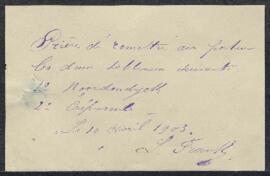 Prière de remettre au porteur
les deux tableaux suivants
1º Noordendyck
2º Crépuscule
Le 10 avril 1903.
L. Frank